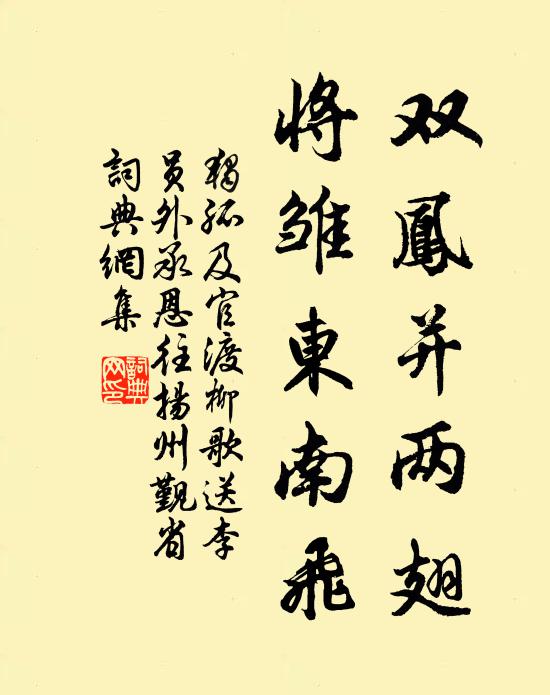 双鳳并两翅
将雏東南飛
獨孤及官渡柳歌送李
員外承恩往揚州覲省
詞典網集
詞典
网印